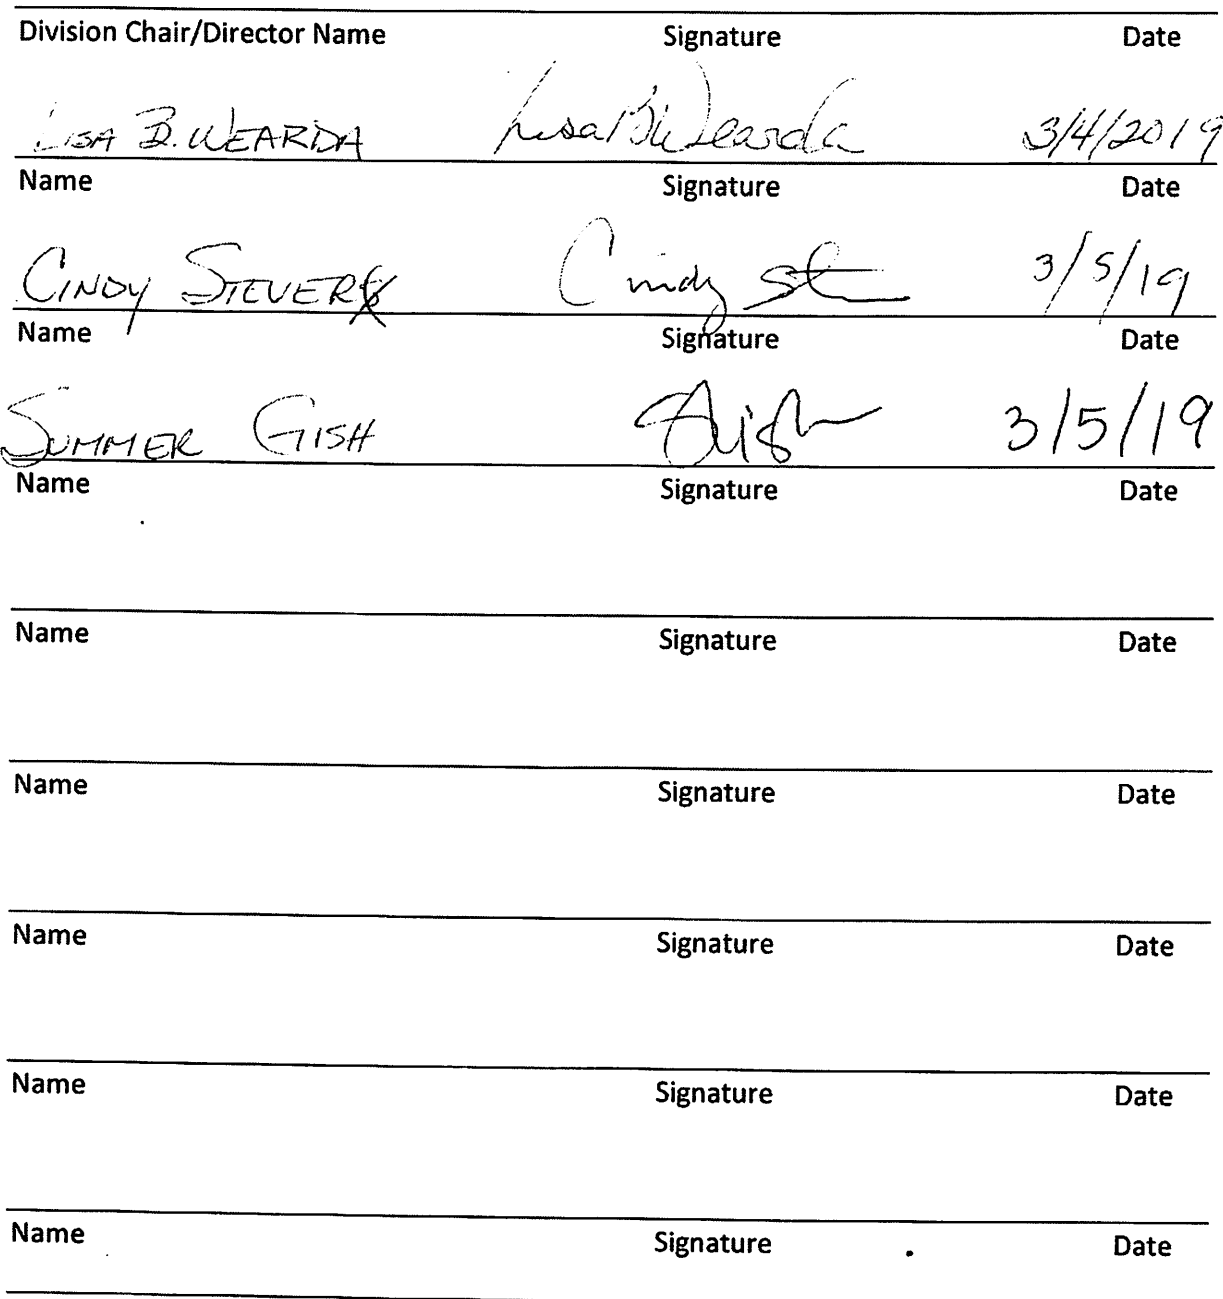 Division Chair/Director Name Signature Date
LISA B. WEARDA Lisa B Wearda 3/4/2019
Name Signature Date
CINDY STEVER Cindy 3/5/19
Name Signature Date
SUMMER GISH SGish 3/5/19
Name Signature Date
Name Signature Date
Name Signature Date
Name Signature Date
Name Signature Date
Name Signature Date